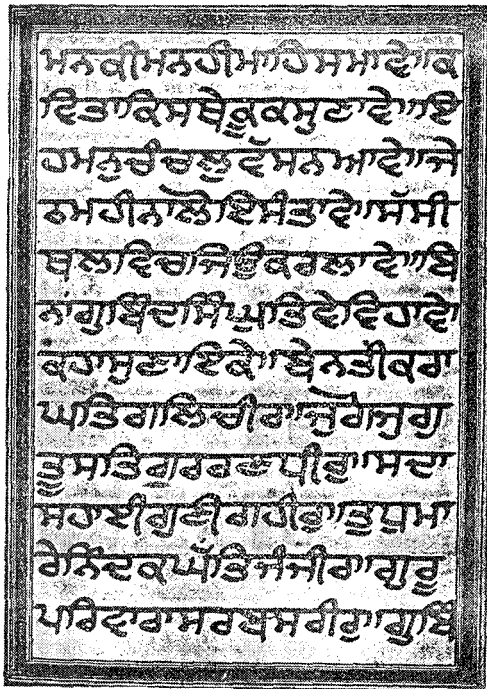 ਮਨਕੀਮਨਹੀਮਾਹਿਸਮਾਵੇ॥ਕ
ਵਿਤਾਕਿਸਥੇਕੂਕਸੁਣਾਵੇ॥ਇ
ਹਮਨੁਚੰਚਲੁਵੱਸਨਆਵੇ॥ਜੇ
ਠਮਹੀਨਾਲੋਇਸੰਤਾਵੇ॥ਸੱਸੀ
ਥਲਵਿਚਜਿਉਂਕਰਲਾਵੇ॥ਬਿ
ਨਾਂਗੁਬਿੰਦਸਿੰਘੁਤਿਵੇਵਿਹਾਵੇ॥
ਕਹਾਸੁਣਾਇਕੇ॥ਬੇਨਤੀਕਰਾ
ਘਤਿਗਲਿਚੀਰਾ॥ਜੁਗੋਜੁਗੁ
ਤੂਸਾਤਿਗੁਰਰਣਧੀਰੁ॥ਸਦਾ
ਸਹਾਈਗੁਣੀਗਹੀਰੁ॥ਤੁਧੁਮਾ
ਰੇਨਿੰਦਕਘੱਤਿਜੰਜੀਰਾ॥ਗੁਰੂ
ਪਰਿਵਾਰਾਸਰਬਸਰੀਰੁ॥ਗੁਬਿੰ